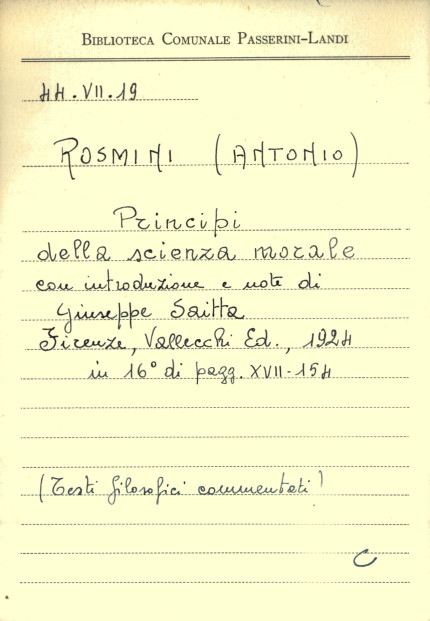 BIBLIOTECA COMUNALE PASSERINI-LANDI
44.VII.19
ROSMINI (ANTONIO)
Principi
della scienza morale
con introduzione e note di
Giuseppe Saitta
Firenze, Vallecchi Ed., 1924
in 16° di pagg. XVII-154
(Testi filosofici commentati)
C